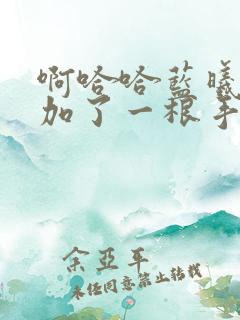 啊哈哈蓝曦
加了一根手
余亚平
未经同意禁止转载